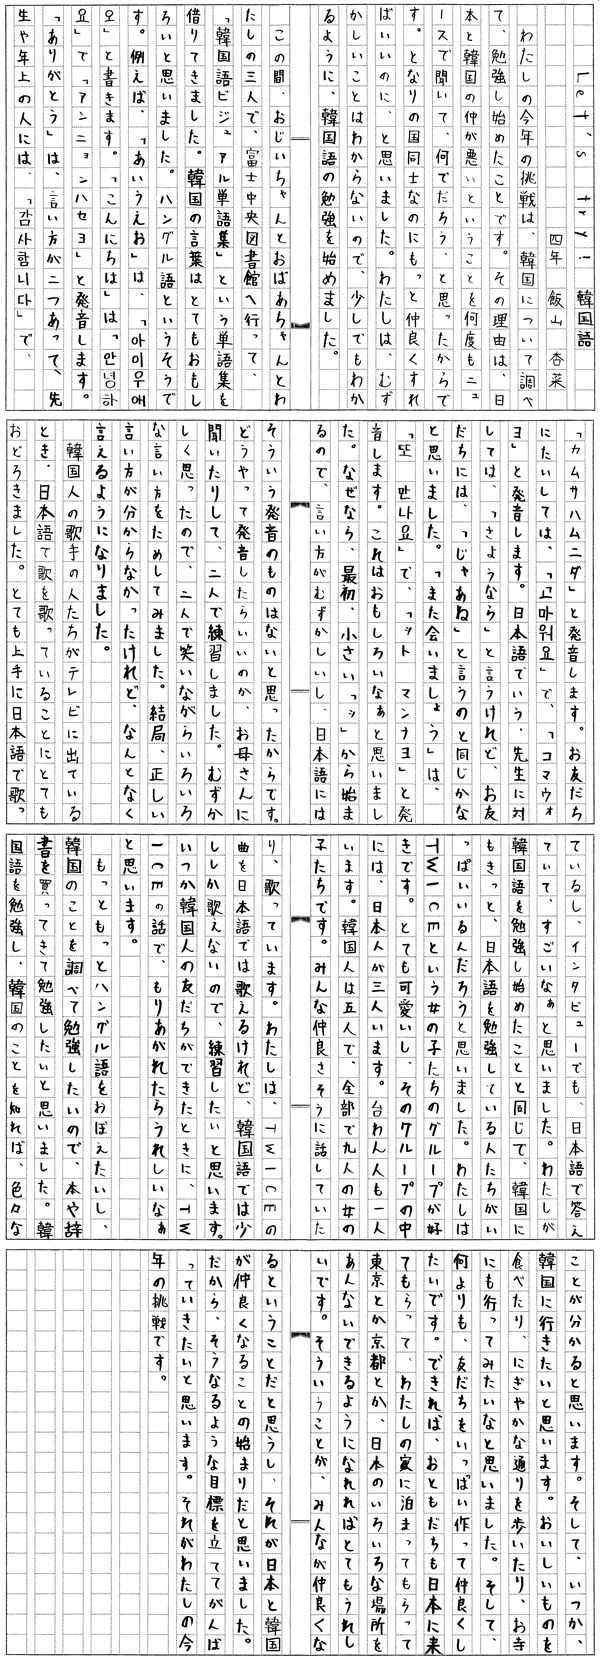 Let's try! 韓国語
四年 飯山 杏菜
わたしの今年の挑戦は、韓国について調べ
て、勉強し始めたことです。その理由は、日
本と韓国の仲が悪いということを何度もニュ
ースで聞いて、何でだろう、と思ったからで
す。となりの国同士なのにもっと仲良くすれ
ばいいのに、と思いました。わたしは、むず
かしいことはわからないので、少しでもわか
るように、韓国語の勉強を始めました。
この間、おじいちゃんとおばあちゃんとわ
たしの三人で、富士中央図書館へ行って、
「韓国語ビジュアル単語集」という単語集を
借りてきました。韓国の言葉はとてもおもし
ろいと思いました。ハングル語というそうで
す。例えば、「あいうえお」は、「아이우애
오」と書きます。「こんにちは」は「안녕하
요」で「アンニョンハセヨ」と発音します。
「ありがとう」は、言い方が二つあって、先
生や年上の人には、「감사합니다」で、
「カムサハムニダ」と発音します。お友だち
にたいしては、「고마워요」で、「コマウォ
ヨ」と発音します。日本語でいう、先生に対
しては、「さようなら」と言うけれど、お友
だちには、「じゃあね」と言うのと同じかな
と思いました。「また会いましょう」は、
「또 만나요」で、「ット マンナヨ」と発
音します。これはおもしろいなぁと思いまし
た。なぜなら、最初、小さい「ッ」から始ま
るので、言い方がむずかしいし、日本語には
そういう発音のものはないと思ったからです。
どうやって発音したらいいのか、お母さんに
聞いたりして、二人で練習しました。むずか
しく思ったので、二人で笑いながらいろいろ
な言い方をためしてみました。結局、正しい
言い方が分からなかったけれど、なんとなく
言えるようになりました。
韓国人の歌手の人たちがテレビに出ている
とき、日本語で歌を歌っていることにとても
おどろきました。とても上手に日本語で歌っ
ているし、インタビューでも、日本語で答え
ていて、すごいなぁと思いました。わたしが
韓国語を勉強し始めたことと同じで、韓国に
もきっと、日本語を勉強している人たちがい
っぱいいるんだろうと思いました。わたしは
TWICEという女の子たちのグループが好
きです。とても可愛いし、そのグループの中
には、日本人が三人います。台わん人も一人
います。韓国人は五人で、全部で九人の女の
子たちです。みんな仲良さそうに話していた
り、歌っています。わたしは、TWICEの
曲を日本語では歌えるけれど、韓国語では少
ししか歌えないので、練習したいと思います。
いつか韓国人の友だちができたときに、TW
ICEの話で、もりあがれたらうれしいなぁ
と思います。
もっともっとハングル語をおぼえたいし、
韓国のことを調べて勉強したいので、本や辞
書を買ってきて勉強したいと思いました。韓
国語を勉強し、韓国のことを知れば、色々な
ことが分かると思います。そして、いつか、
韓国に行きたいと思います。おいしいものを
食べたり、にぎやかな通りを歩いたり、お寺
にも行ってみたいなと思いました。そして、
何よりも、友だちをいっぱい作って仲良くし
たいです。できれば、おともだちも日本に来
てもらって、わたしの家に泊まってもらって
東京とか京都とか、日本のいろいろな場所を
あんないできるようになれればとてもうれし
いです。そういうことが、みんなが仲良くな
るということだと思うし、それが日本と韓国
が仲良くなることの始まりだと思いました。
だから、そうなるような目標を立ててがんば
っていきたいと思います。それがわたしの今
年の挑戦です。